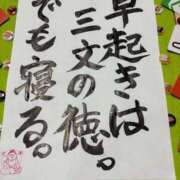 早起きは
三文の徳。
でも寝る。